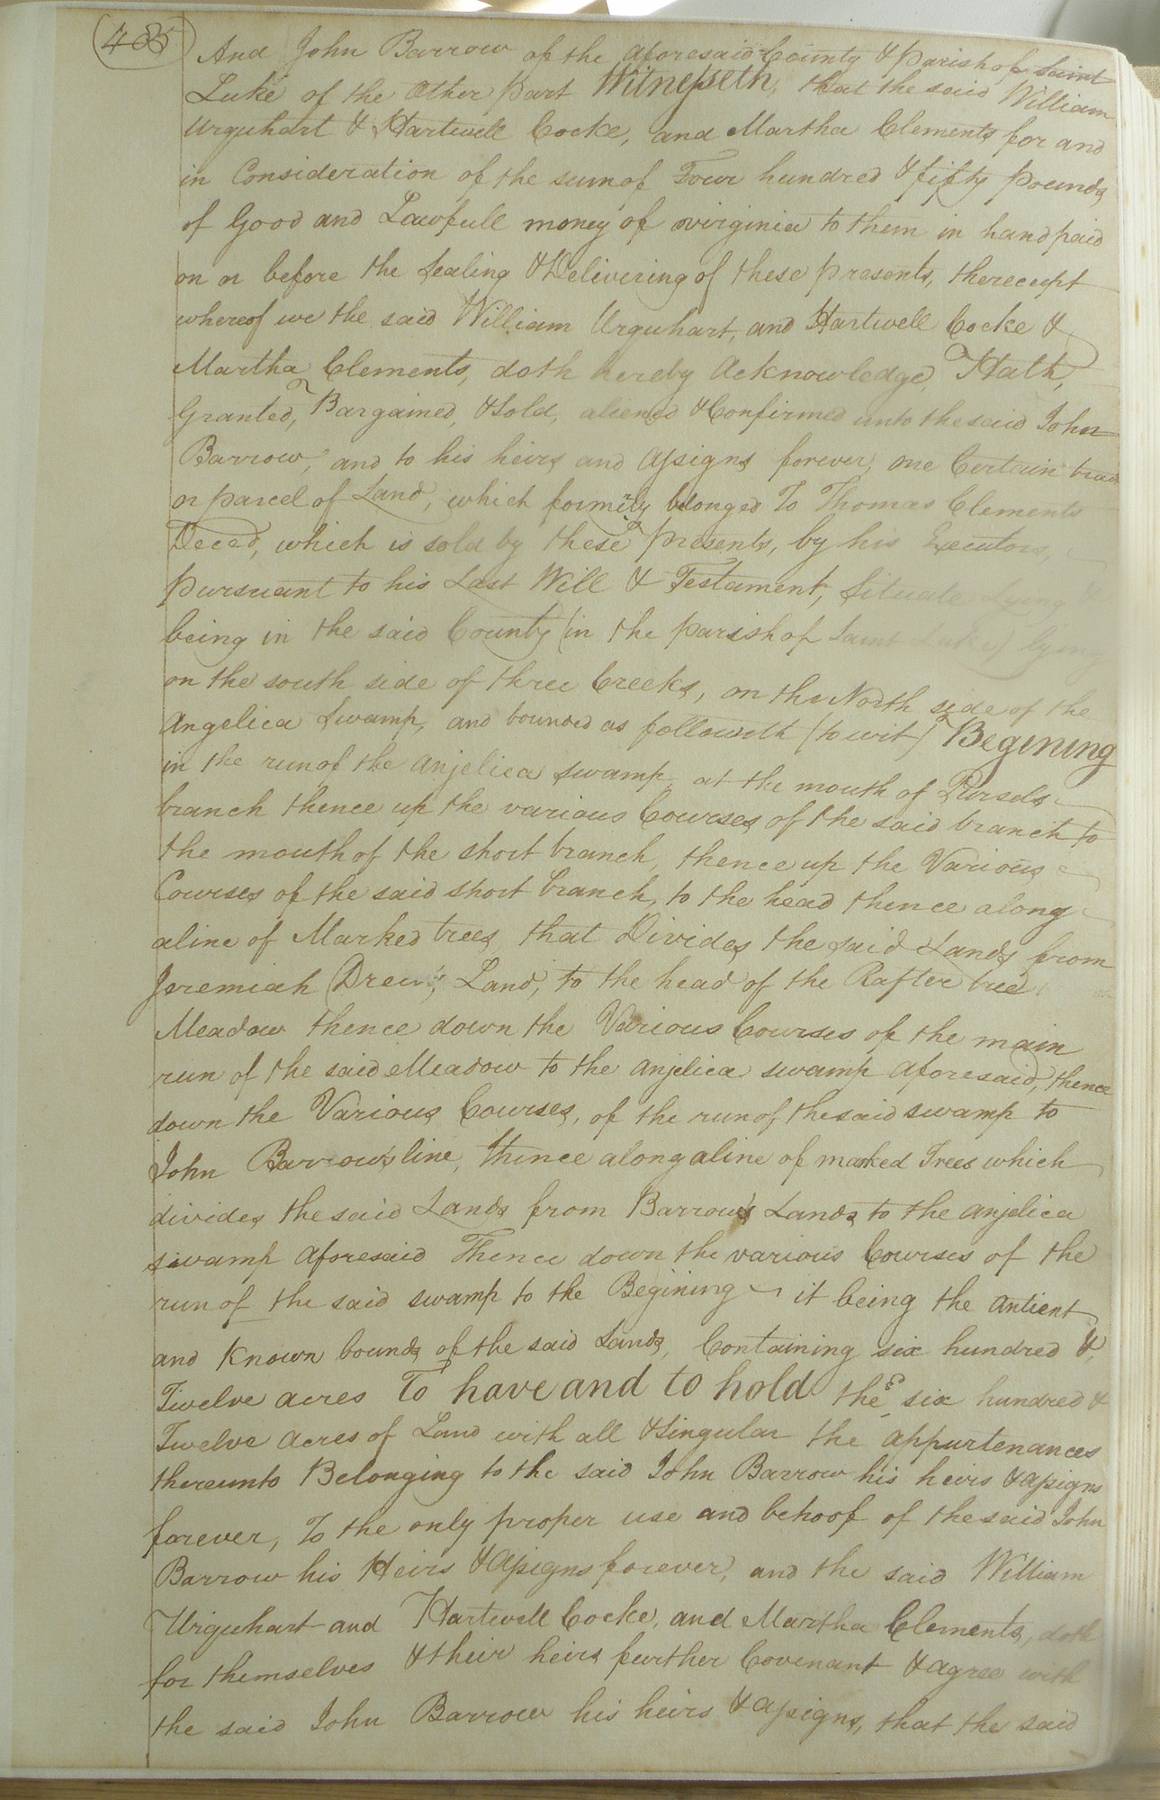 485
And John Barrow of the aforesaid County & Parish of Saint
Luke of the Other part Witnesseth, that the said William
Urquhart & Hartwell Cocke, and Martha Clements for and
in Consideration of the sum of Four hundred & fifty pounds
of Good and Lawfull money of virginia to them in hand paid
on or before the Sealing & Delivering of these presents, the receipt
whereof we the said William Urquhart, and Hartwell Cocke &
Martha Clements, doth hereby Acknowledge, Hath,
Granted, Bargained, & Sold, aliened & Confirmed unto the said John
Barrow, and to his heirs and Assigns forever, one Certain tract
or parcel of Land, which formerly belonged To Thomas Clements
Deced, which is sold by these presents, by his Executors,
pursuant to his Last Will & Testament, Situate Lying &
being in the said County (in the parish of Saint Luke) lying
on the south side of three Creeks, on the North side of the
Angelica Swamp, and bounded as followeth (to wit) Begining
in the run of the Anjelica Swamp at the mouth of Pursels
branch thence up the various Courses of the said branch to
the mouth of the short branch, thence up the Various
Courses of the said short branch, to the head thence along
a line of Marked trees that Divides the said Lands from
Jeremiah Drew's Land, to the head of the Rafter tree
Meadow thence down the Various Courses of the main
run of the said Meadow to the Anjelica swamp Aforesaid, thence
down the Various Courses, of the run of the said swamp to
John Barrow's line, thence along a line of marked Trees which
divides the said Lands from Barrow's Lands to the Anjelica
swamp Aforesaid Thence down the various Courses of the
run of the said swamp to the Begining it being the Antient
and Known bounds of the said Lands, Containing six hundred &
Twelve acres To have and to hold the six hundred &
Twelve Acres of Land with all & Singular the appurtenances
thereunto Belonging to the said John Barrow his heirs & assigns
forever, To the only proper use and behoof of the said John
Barrow his Heirs & Assigns forever, and the said William
Urquhart and Hartwell Cocke, and Martha Clements, doth
for themselves & their heirs further Covenant & agree with
the said John Barrow his heirs & assigns, that the said